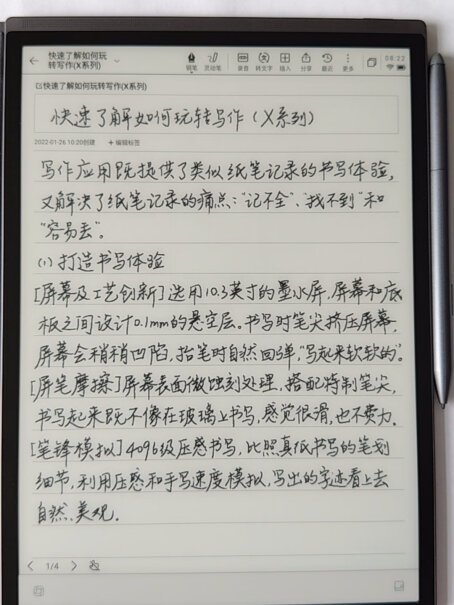 快速了解如何玩
转写作(X系列)
钢笔 灵动笔 录音 转文字 插入 分享 最近 更多
08:22
快速了解如何玩转写作(X系列)
快速了解如何玩转写作(X系列)
2022-01-26 10:20创建 + 编辑标签
写作应用既提供了类似纸笔记录的书写体验,
又解决了纸笔记录的痛点:"记不全"、"找不到"和
"容易丢"。
(1)打造书写体验
[屏幕及工艺创新]选用10.3英寸的墨水屏,屏幕和底
板之间设计0.1mm的悬空层。书写时笔尖挤压屏幕,
屏幕会稍稍凹陷,抬笔时自然回弹,"写起来软软的"。
[屏笔摩擦]屏幕表面微蚀刻处理,搭配特制笔尖,
书写起来既不像在玻璃上书写,感觉很滑,也不费力。
[笔锋模拟]4096级压感书写,比照真纸书写的笔划
细节,利用压感和手写速度模拟,写出的字迹看上去
自然、美观。
< 1/4 >